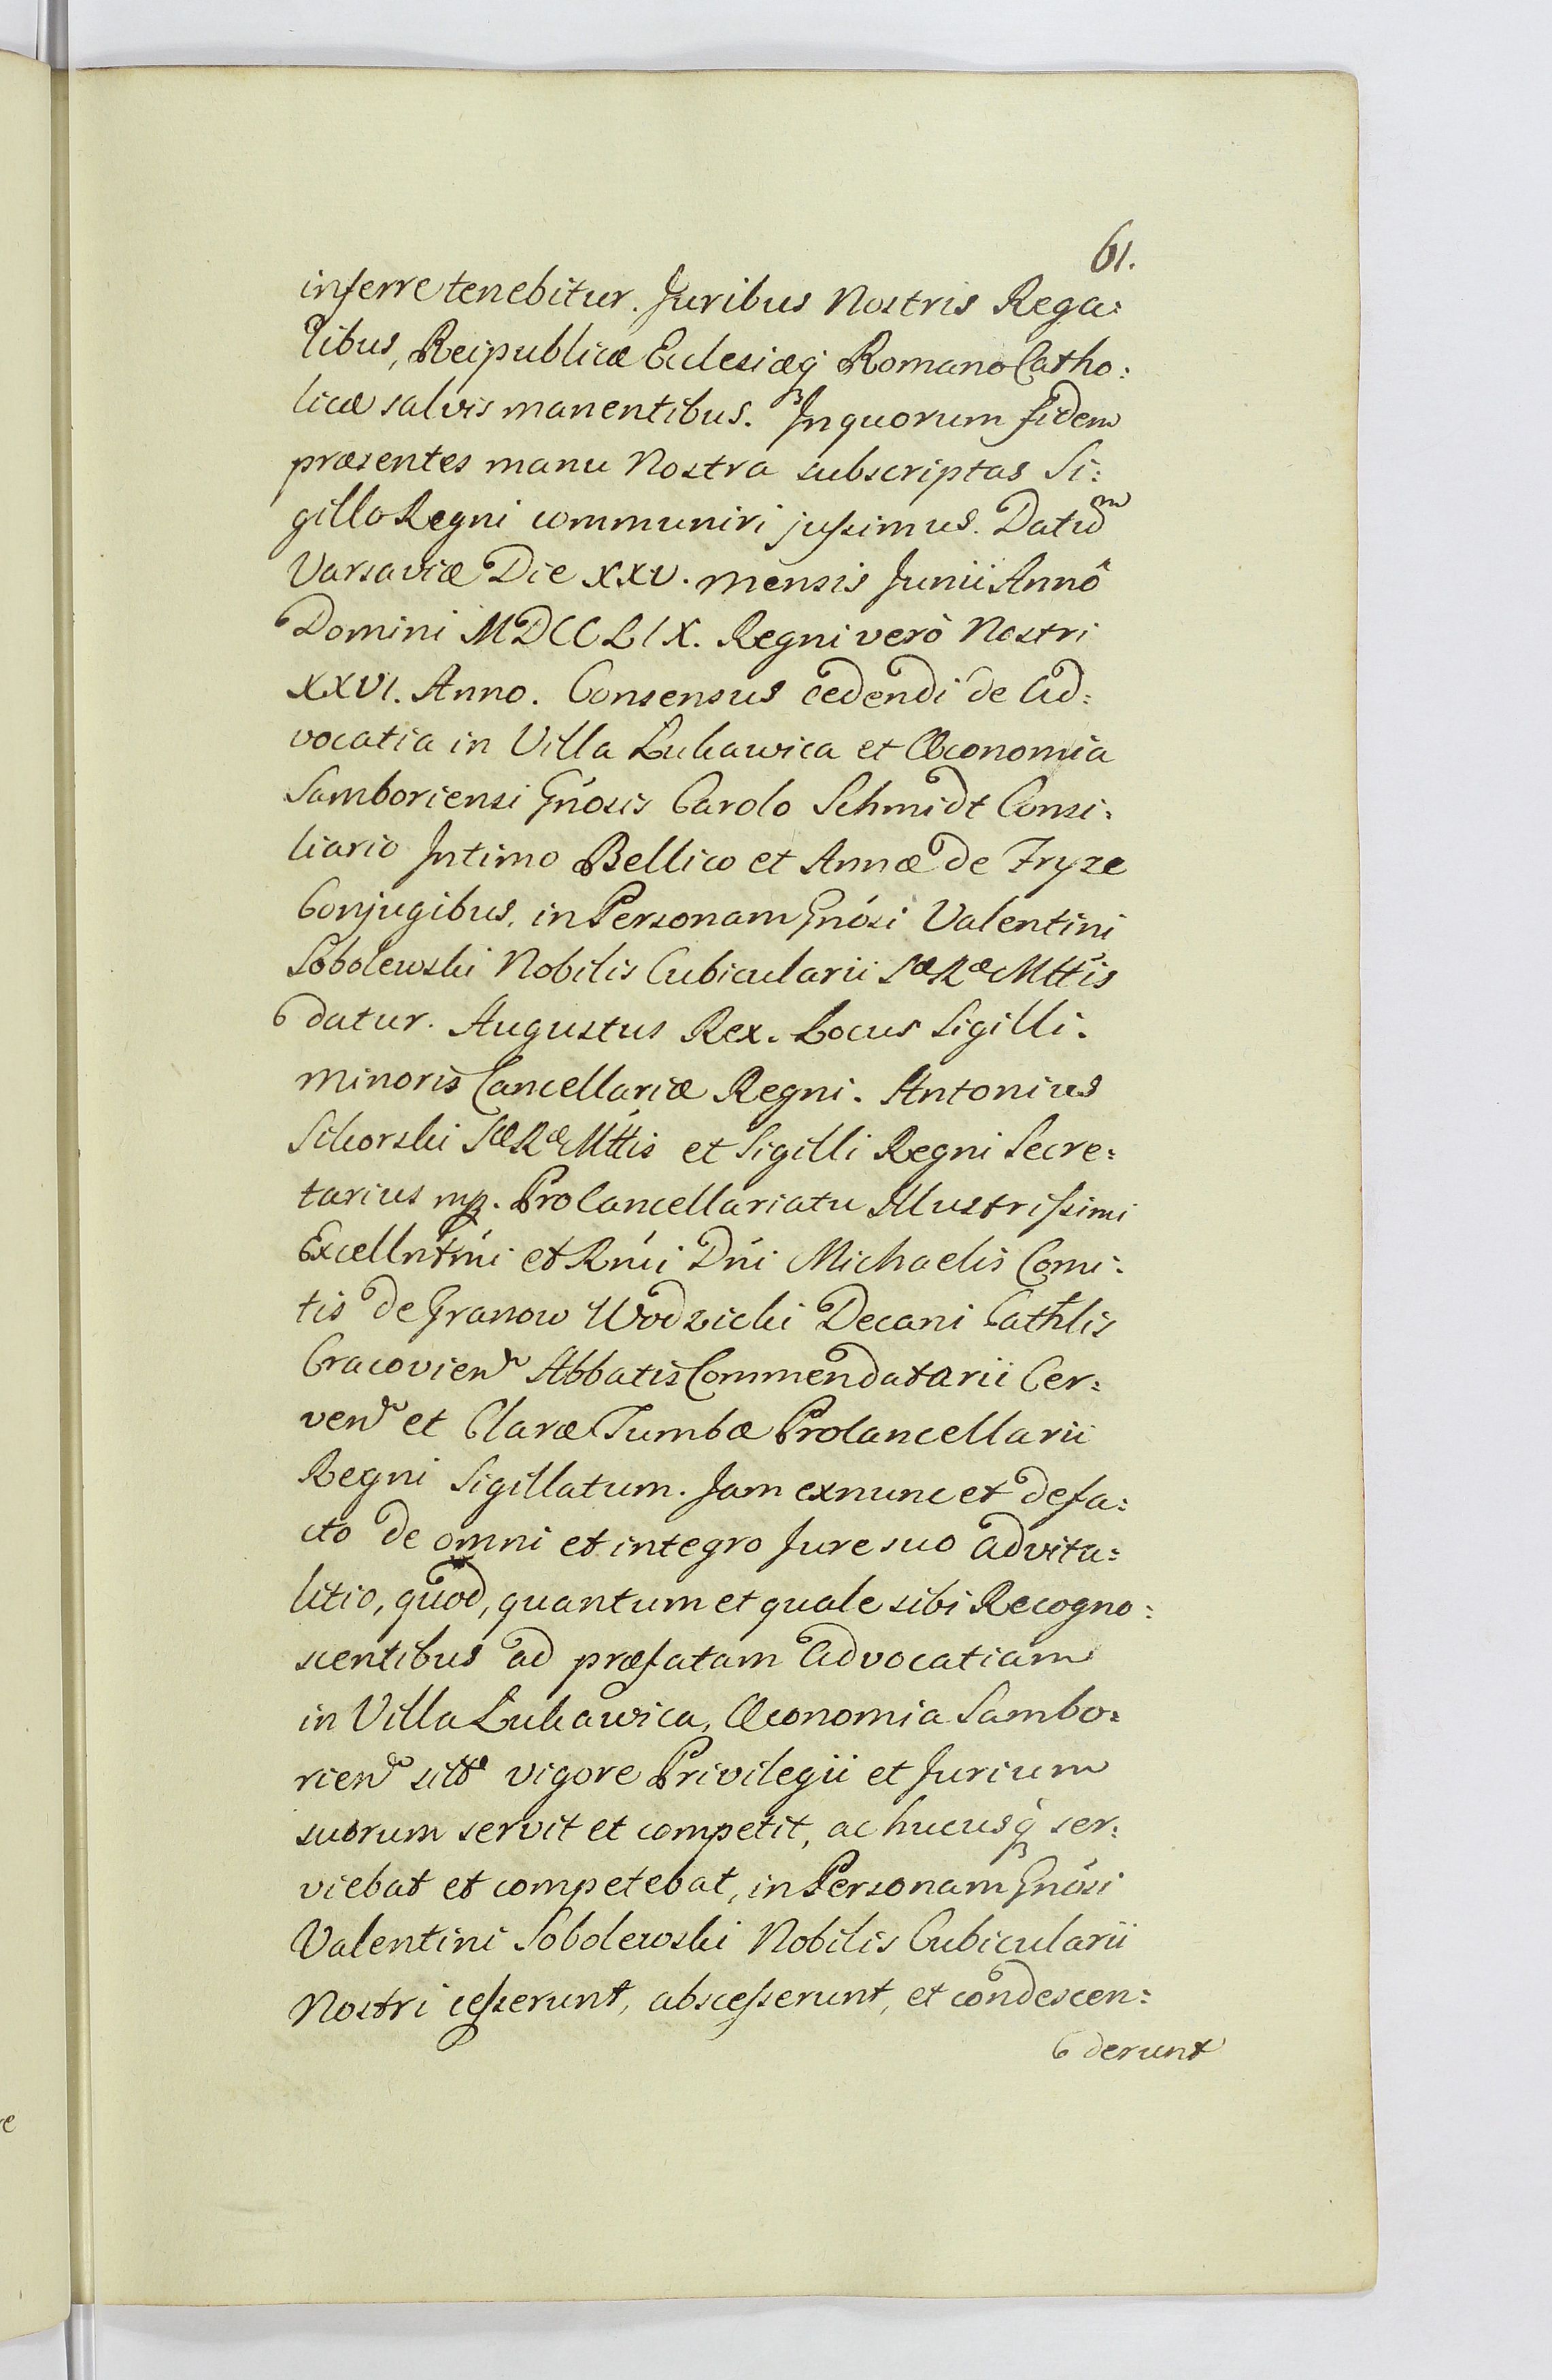 61.
inferre tenebitur. Juribus Nostris Rega:
libus, Reipublicæ Eclesiæq́ Romano Catho:
licæ salvis manentibus. In quorum fidem
præsentes manu Nostra subscriptas Si:
gillo Regni communiri jussimus. Datum
Varsaviæ Die XXV. mensis Junii Annô
Domini MDCCLIX. Regni verò Nostri
XXVI. Anno. Consensus cedendi de Ad:
vocatia in Villa Lukawica et Œconomia
Samboriensi Gnosis Carolo Schmidt Consi:
liario Intimo Bellico et Annæ de Fryze
Conjugibus, in Personam Gnósi Valentini
Sobolewski Nobilis Cubicularii Sæ Ræ Mttis
datur. Augustus Rex. Locus Sigilli.
minoris Cancellariæ Regni. Antonius
Sikorski Sæ Ræ Mttis et Sigilli Regni Secre:
tarius mp. Procancellariatu Illustrissimi
Excellntmi et Rmi Dni Michaelis Comi:
tis de Granow Wodzicki Decani Cathlis
Cracovien Abbatis Commendatarii Cer:
ven et Claræ Tumbæ Procancellarii
Regni Sigillatum. Jam exnunc et defa:
cto de omni et integro Jure suo advita:
litio, quod, quantum et quale sibi Recogno:
scentibus ad præfatam Advocatiam
in Villa Lukawica, Œconomia Sambo:
rien sitt vigore Privilegii et Jurium
suorum servit et competit, ac hucusq́ ser:
viebat et competebat, in Personam Gnósi
Valentini Sobolewski Nobilis Cubicularii
Nostri cesserunt, abscesserunt, et condescen:
derunt